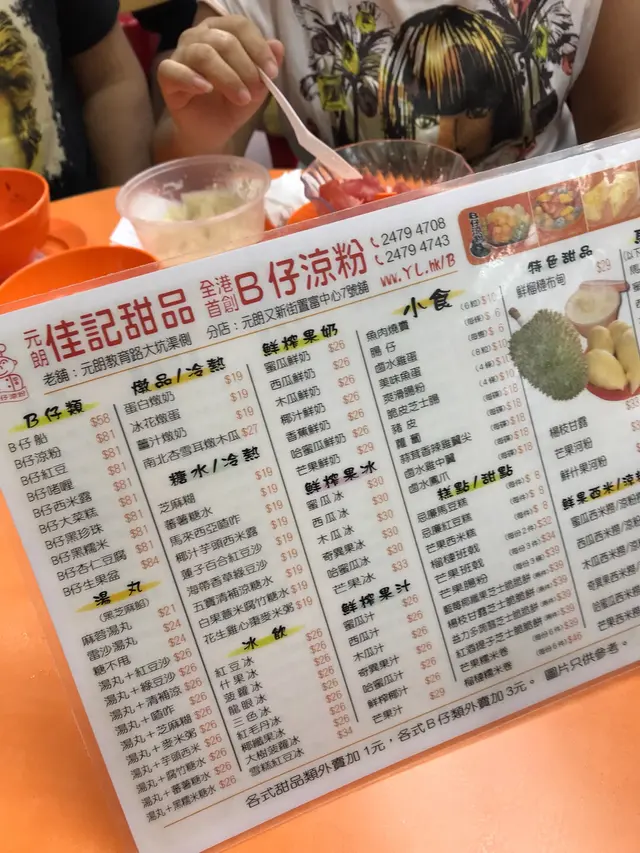 元朗 佳記甜品 全港首創 B仔涼粉 2479 4708
2479 4743
www.YL.hk/B
老舖：元朗教育路大坑渠側
分店：元朗又新街置富中心7號舖
B仔類
B仔船 $68
B仔涼粉 $81
B仔紅豆 $81
B仔啫喱 $81
B仔西米露 $81
B仔大菜糕 $81
B仔黑珍珠 $81
B仔黑糯米 $81
B仔杏仁豆腐 $81
B仔生果盆 $84
湯丸
(黑芝麻餡)
麻蓉湯丸 $21
雷沙湯丸 $24
糖不甩 $24
湯丸+紅豆沙 $26
湯丸+綠豆沙 $26
湯丸+清補涼 $26
湯丸+喳咋 $26
湯丸+芝麻糊 $26
湯丸+麥米粥 $26
湯丸+芋頭西米 $26
湯丸+腐竹糖水 $26
湯丸+蕃薯糖水 $26
湯丸+黑糯米糖水 $26
燉品/冷熱
蛋白燉奶 $19
冰花燉蛋 $19
薑汁燉奶 $19
南北杏雪耳燉木瓜 $27
糖水/冷熱
芝麻糊 $19
蕃薯糖水 $19
馬來西亞喳咋 $19
椰汁芋頭西米露 $19
蓮子百合紅豆沙 $19
海帶香草綠豆沙 $19
五寶清補涼糖水 $19
白果薏米腐竹糖水 $19
花生雞心棗麥米粥 $19
冰飲
紅豆冰 $26
什果冰 $26
菠蘿冰 $26
龍眼冰 $26
三色冰 $26
紅毛丹冰 $26
椰纖果冰 $26
大樹菠蘿冰 $26
雪糕紅豆冰 $34
鮮榨果奶
蜜瓜鮮奶 $26
西瓜鮮奶 $26
木瓜鮮奶 $26
椰汁鮮奶 $26
香蕉鮮奶 $26
哈蜜瓜鮮奶 $26
芒果鮮奶 $29
鮮榨果冰
蜜瓜冰 $30
西瓜冰 $30
木瓜冰 $30
奇異果冰 $30
哈蜜瓜冰 $30
芒果冰 $33
鮮榨果汁
蜜瓜汁 $26
西瓜汁 $26
木瓜汁 $26
奇異果汁 $26
哈蜜瓜汁 $26
鮮榨椰汁 $26
芒果汁 $29
小食
魚肉燒賣 (6粒) $10
腸仔 $6
鹵水雞蛋 $6
美味魚蛋 $10
爽滑腸粉 $10
脆皮芝士腸 $18
豬皮 $18
蘿蔔 $18
蒜茸香辣雞翼尖 $18
鹵水雞中翼 $18
鹵水鳳爪 $18
糕點/甜點
忌廉馬豆糕 $8
忌廉紅豆糕 $8
芒果西米糕 $8
榴槤班戟 (每件2件) $32
芒果班戟 $34
芒果腸粉 $39
藍莓熊貓果芝士脆脆餅 $39
楊枝甘露芝士脆脆餅 $39
益力多蒟蒻芝士脆脆餅 $39
紅酒提子芝士脆脆餅 $39
芒果糯米卷 $39
榴槤糯米卷 $46
特色甜品
鮮榴槤布甸 $29
楊枝甘露 $33
芒果河粉
鮮什果河粉
鮮果西米
蜜瓜西米撈
西瓜西米撈
木瓜西米撈
芒果西米
各式甜品類外賣加1元，各式B仔類外賣加3元。 圖片只供參考。